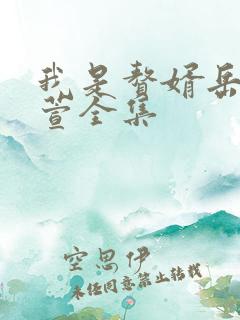 我是赘婿岳
萱全集
空思伊
未经同意禁止转载